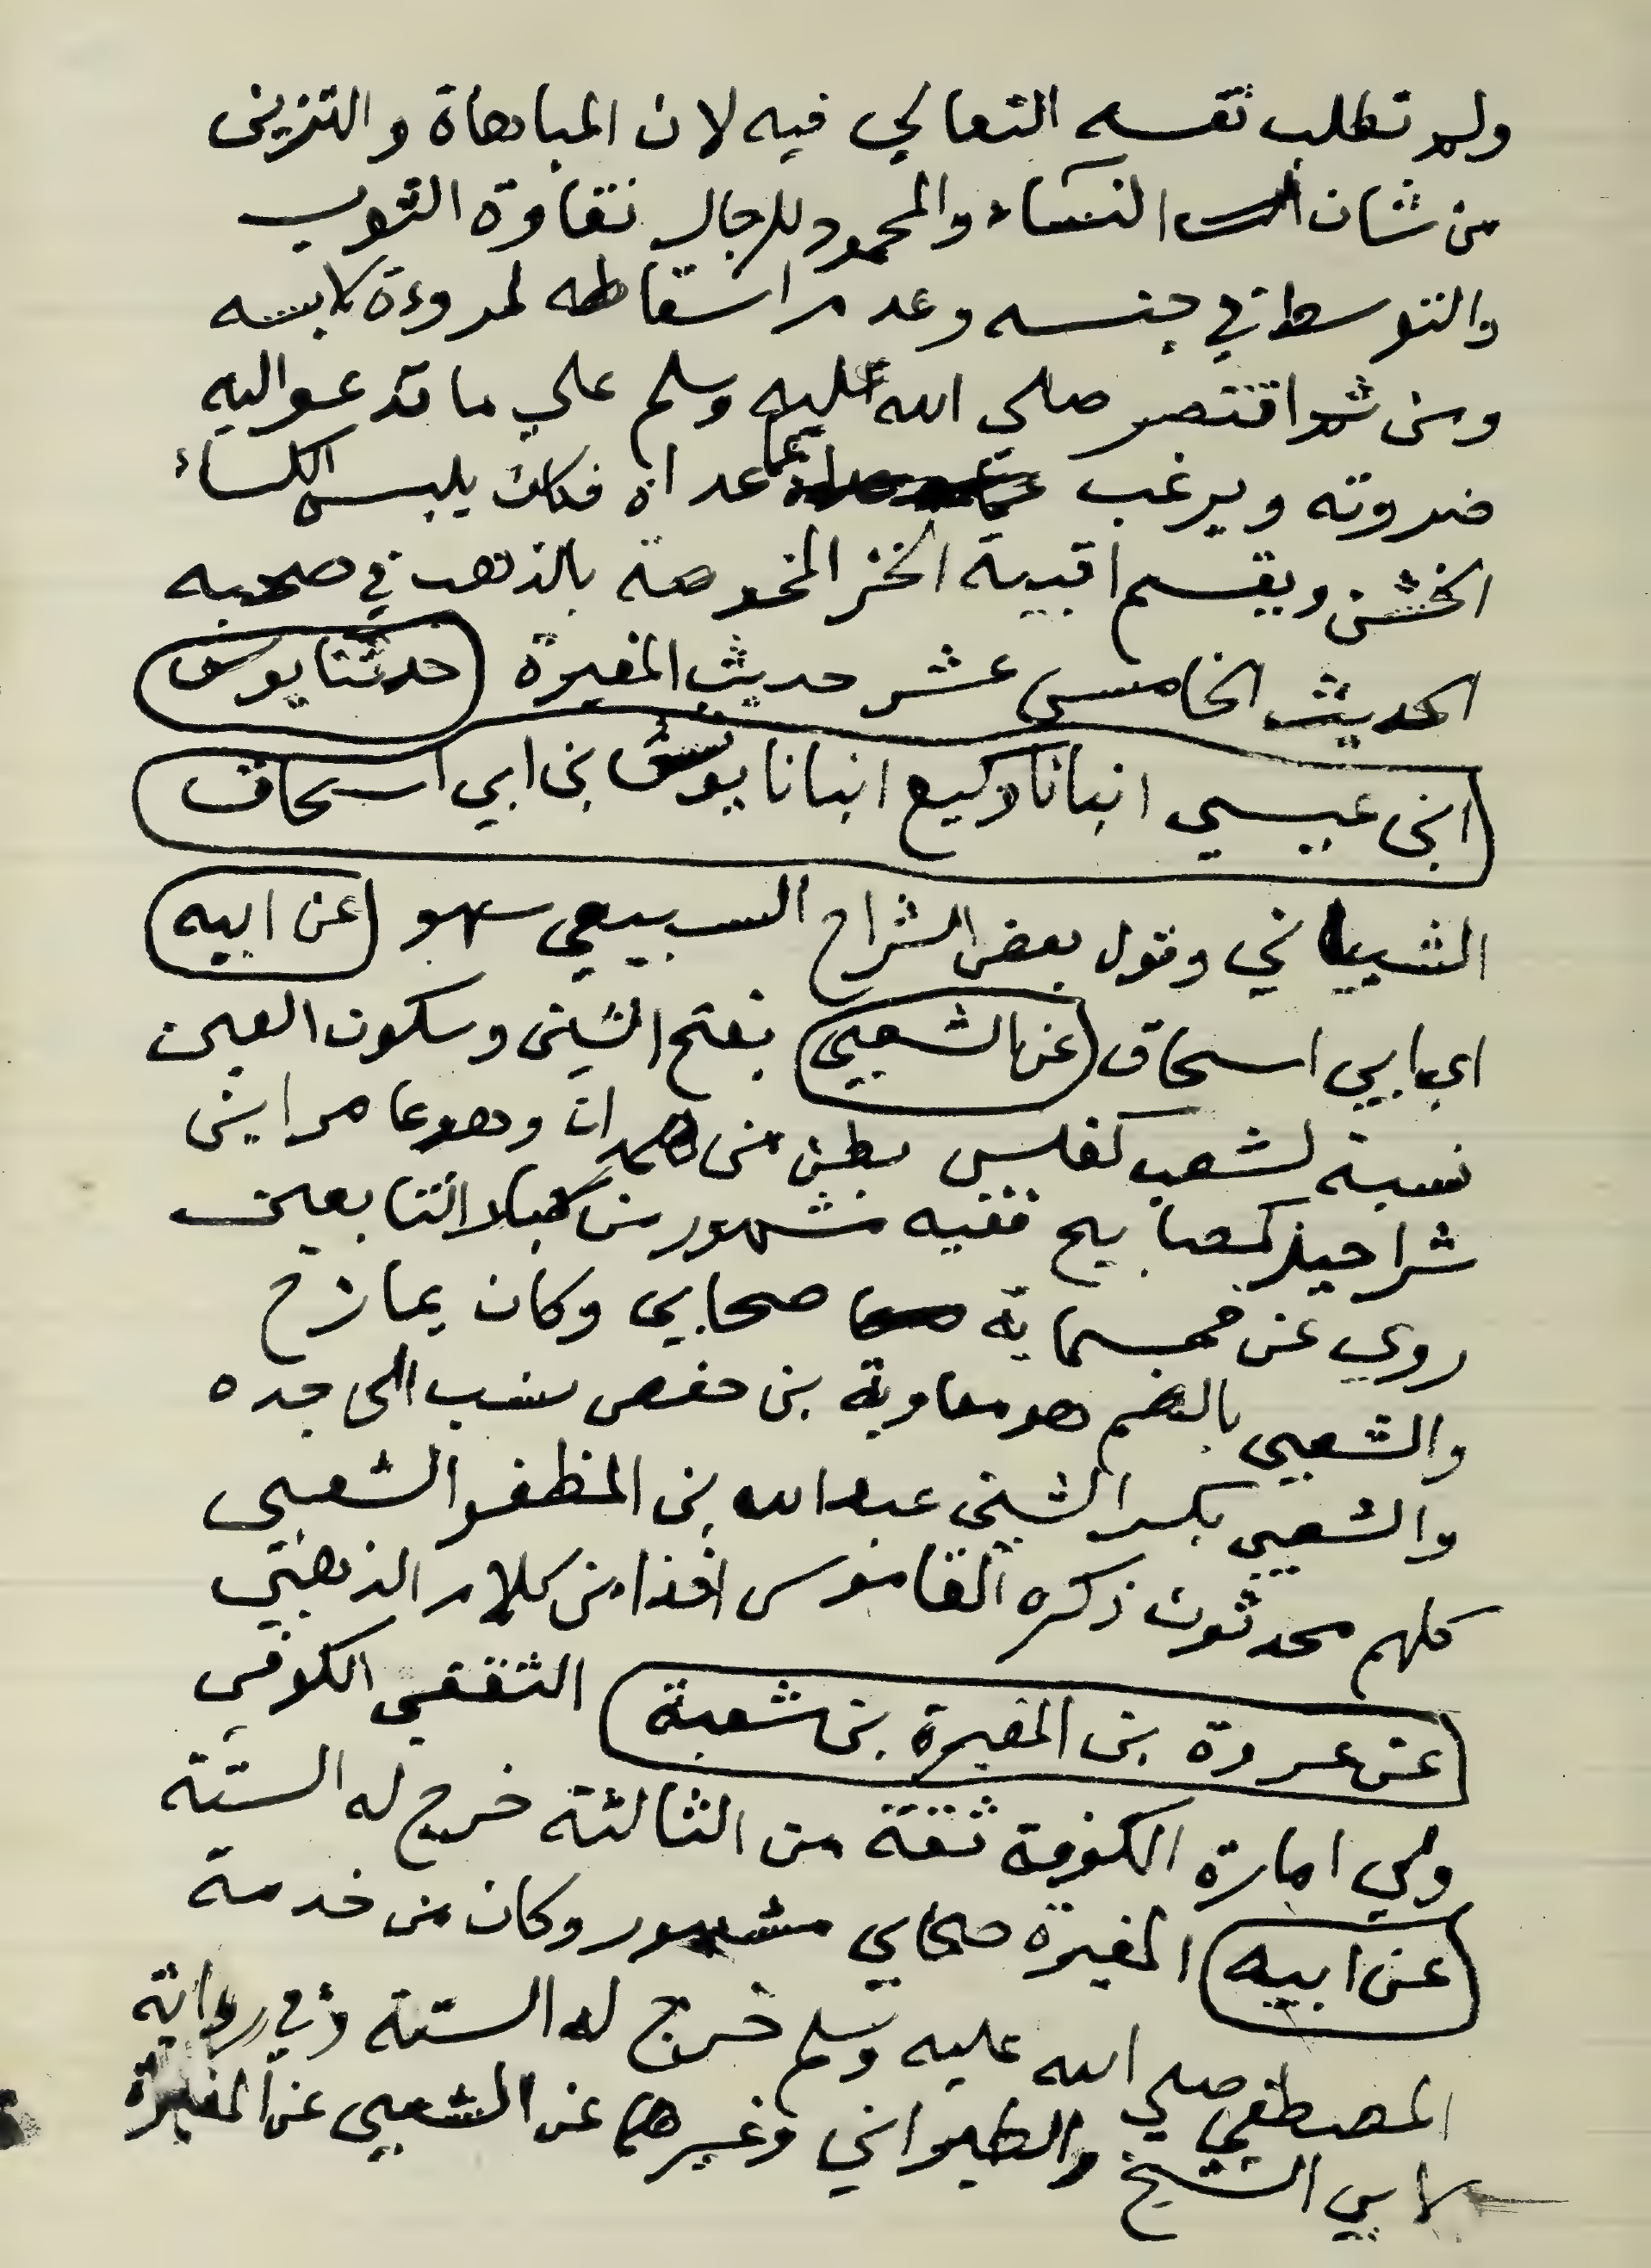 ولم تطلب نفسه التعالي فيه لان المباهاة والتزين
من شان النساء والمحمود للرجال نقاوة الثوب
والتوسط في جنسه وعدم اسقاطه لمروءة لابسه
ومن ثم اقتصر صلي الله عليه وسلم علي ما تدعو اليه
ضروته ويرغب عما عداه فكان يلبس الكساء
الخشن ويقسم اقبية الخز المخوصة بالذهب في صحبه
الحديث الخامس عشر حديث المغيرة حدثنا يوسف
ابن عيسي انبانا وكيع انبانا يونس بن ابي اسحاق
الشيباني وقول بعض الشراح السبيعي سهو عن ابيه
اي ابي اسحاق عن الشعبي بفتح الشين وسكون العين
نسبة لشعب كفلس بطن من همدان وهو عامر ابن
شراحيل كمصابيح فقيه مشهور من كبار التابعين
روي عن خمسماية صحابي وكان يمازح
والشعبي بالضم هو معاوية بن حفص نسب الى جده
والشعبي بكسر الشين عبد الله بن المظفر الشعبي
كلهم محدثون ذكره القاموس اخذا من كلام الذهبي
عن عروة بن المغيرة بن شعبة الثقفي الكوفي
ولي امارة الكوفة ثقة من الثالثة خرج له الستة
عن ابيه المغيرة صحابي مشهور وكان من خدمة
المصطفي صلي الله عليه وسلم خرج له الستة وفي رواية
لابي الشيخ والطبراني وغيرهما عن الشعبي عن المغيرة